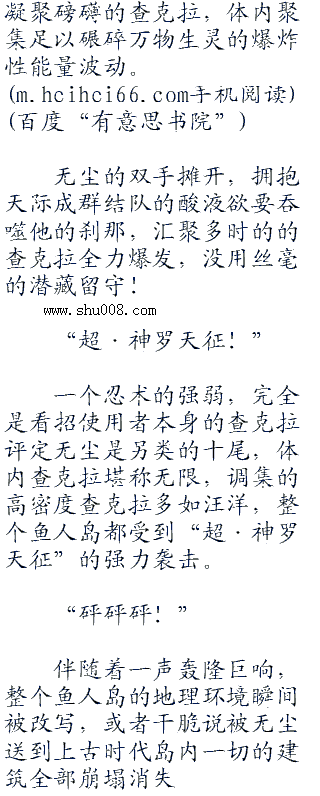 凝聚磅礴的查克拉，体内聚
集足以碾碎万物生灵的爆炸
性能量波动。
(m.hcihci66.com手机阅读)
(百度“有意思书院”)
无尘的双手摊开，拥抱
天际成群结队的酸液欲要吞
噬他的刹那，汇聚多时的的
查克拉全力爆发，没用丝毫
的潜藏留守！
www.shu008.com
“超·神罗天征！”
一个忍术的强弱，完全
是看招使用者本身的查克拉
评定无尘是另类的十尾，体
内查克拉堪称无限，调集的
高密度查克拉多如汪洋，整
个鱼人岛都受到“超·神罗
天征”的强力袭击。
“砰砰砰！”
伴随着一声轰隆巨响，
整个鱼人岛的地理环境瞬间
被改写，或者干脆说被无尘
送到上古时代岛内一切的建
筑全部崩塌消失